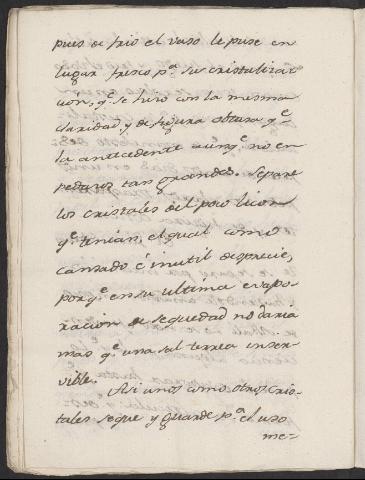 pues de frio el vaso le puse en
lugar fresco p.ª su cristalizac
cion, q.e se hizo con la misma
claridad, y de figura obtusa q.e
la antecedente aunq.e no en
pedazos tan grandes. Separe
los cristales del poco licor
q.e tenian, el qual como
cansado è inutil desprecie,
porq.e en su ultima evapo-
racion de sequedad no daria
mas q.e una sal terrea inser-
vible.
Asi unos como otros cris-
tales seque y guarde p.ª el uso
me=